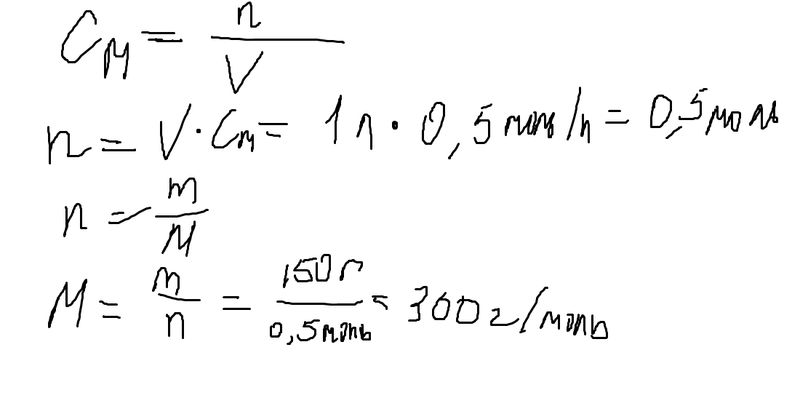 C_M = n/V
n = V · C_M = 1 л · 0,5 моль/л = 0,5 моль
n = m/M
M = m/n = 150 г/0,5 моль = 300 г/моль